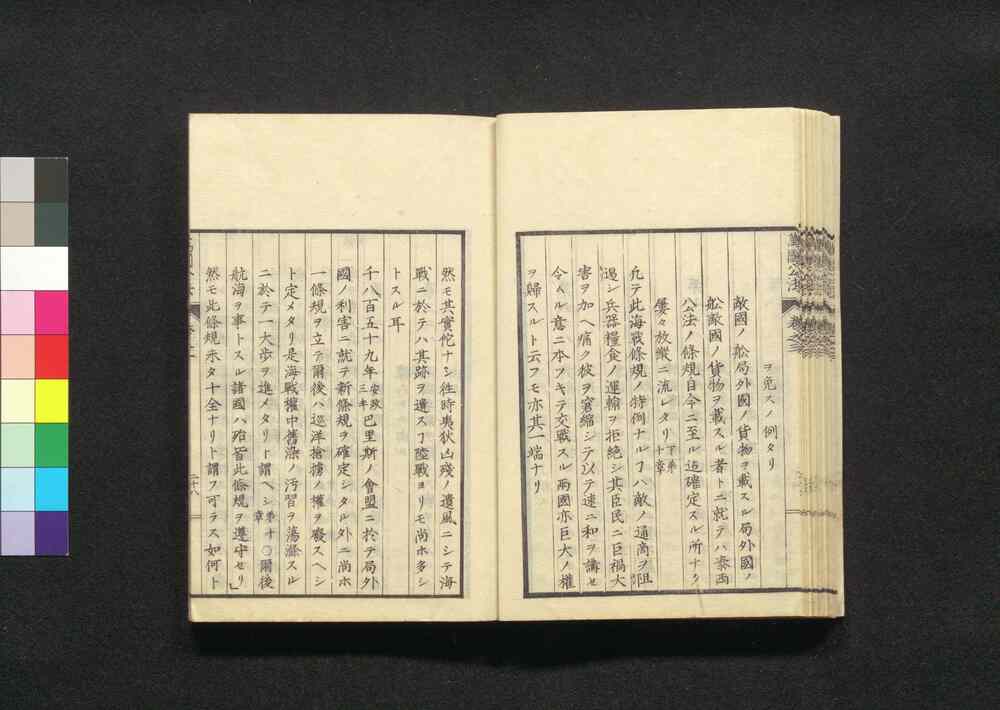 ヲ免スノ例タリ
敵國ノ舩局外國ノ貨物ヲ載スル局外國ノ
舩敵國ノ貨物ヲ載スル者トニ就テハ泰西
公法ノ條規自今ニ至ル迠確定スル所ナク
屢々放縱ニ流レタリ下第十章
凢テ此海戰條規ノ特例ナルヿハ敵ノ通商ヲ阻
遏シ兵器糧食ノ運輸ヲ拒絶シ其臣民ニ巨禍大
害ヲ加ヘ痛ク彼ヲ窘縮シテ以テ速ニ和ヲ講セ
令ムル意ニ本フキテ交戰スル兩國亦巨大ノ權
ヲ歸スルト云フモ亦其一端ナリ
然モ其實佗ナシ徃時夷狄凶殘ノ遺風ニシテ海
戰ニ於テハ其跡ヲ遺スヿ陸戰ヨリモ尚ホ多シ
トスル耳
千八百五十九年安政三年巴里斯ノ會盟ニ於テ局外
國ノ利害ニ就テ新條規ヲ確定シタル外ニ尚ホ
一條規ヲ立テ爾後ハ巡洋搶擄ノ權ヲ廢スヘシ
ト定メタリ是海戰權中舊染ノ汚習ヲ蕩滌スル
ニ於テ一大歩ヲ進メタリト謂ヘシ第十章〇爾後
航海ヲ事トスル諸國ハ殆皆此條規ヲ遵守セリ」
然モ此條規未タ十全ナリト謂フ可ラス如何ト